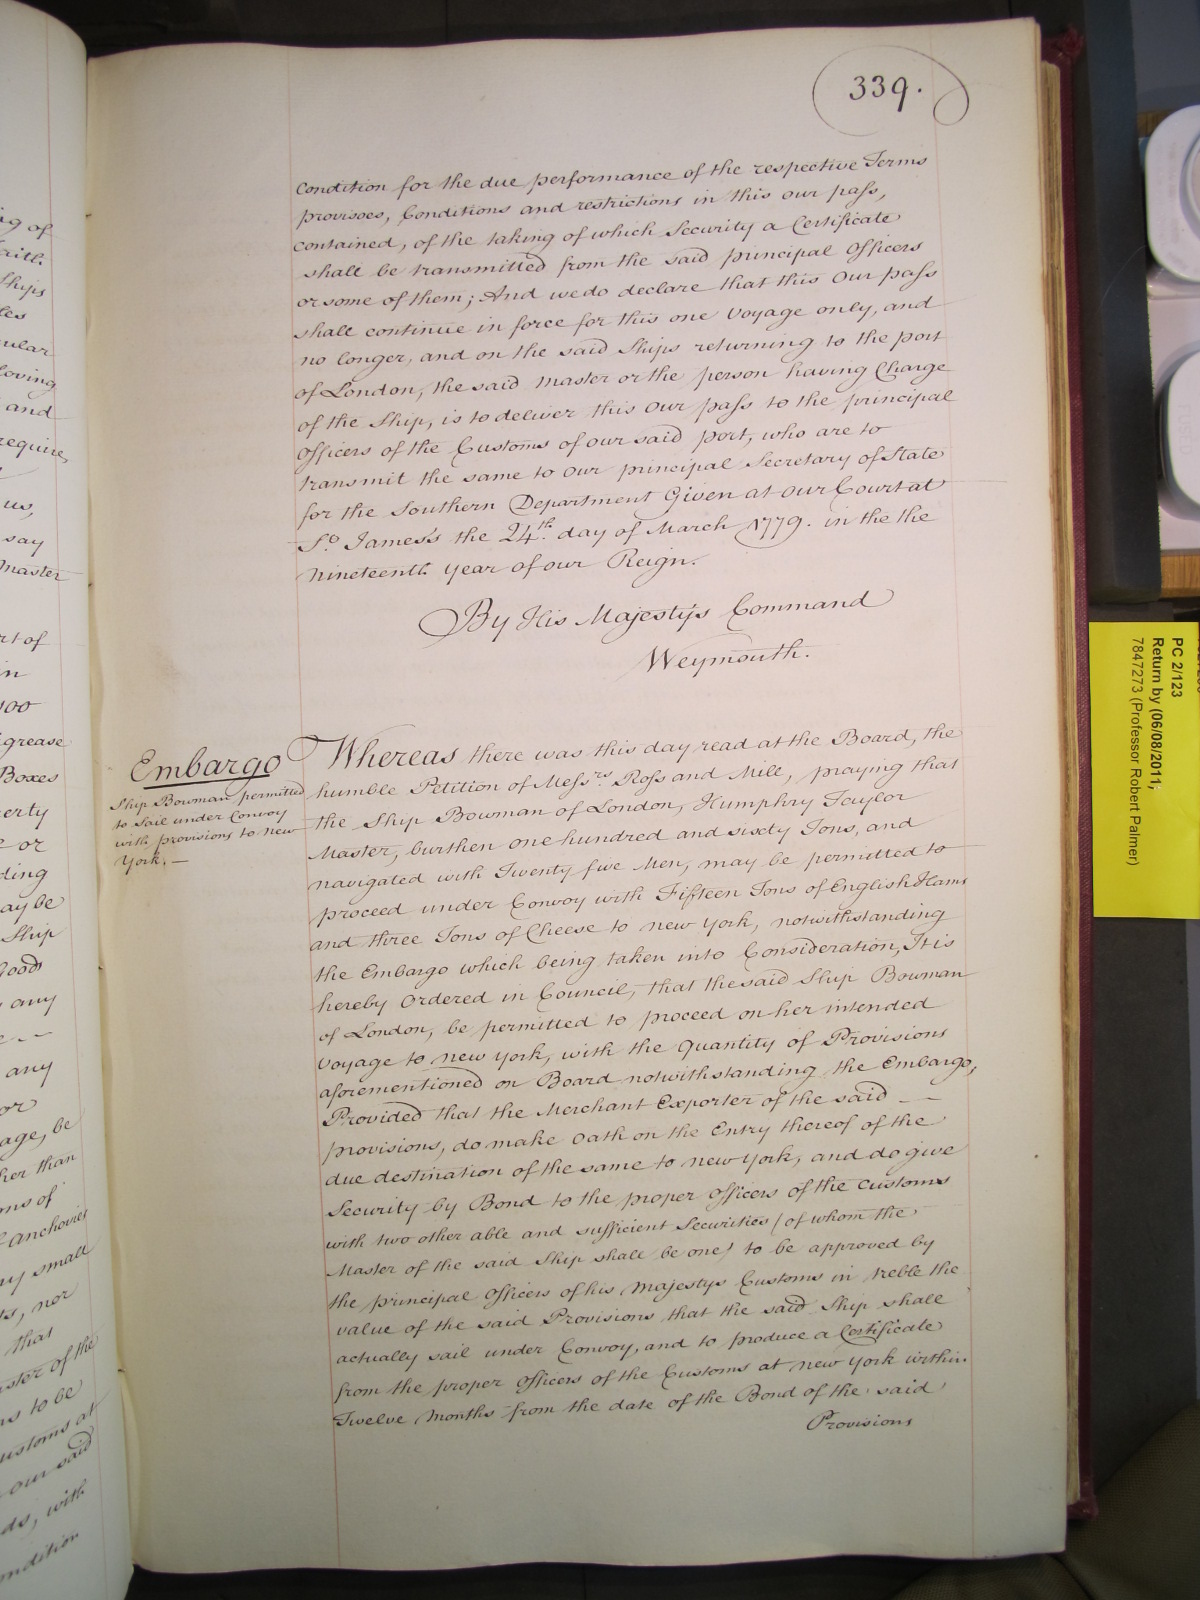 339.
Condition for the due performance of the respective Terms
provisoes, Conditions and restrictions in this our pass,
contained, of the taking of which Security a Certificate
shall be transmitted from the said principal Officers
or some of them; And we do declare that this Our pass
shall continue in force for this one Voyage only, and
no longer, and on the said Ships returning to the port
of London, the said Master or the person having Charge
of the Ship, is to deliver this Our pass to the principal
Officers of the Customs of our said port, who are to
transmit the same to Our principal Secretary of State
for the Southern Department Given at Our Court at
St. James's the 24th. day of March 1779. in the the
nineteenth year of our Reign.
By His Majesty's Command
Weymouth.
Embargo
Ship Bowman permitted
to Sail under Convoy
with provisions to New
York. —
Whereas there was this day read at the Board, the
humble Petition of Messrs. Ross and Mill, praying that
the Ship Bowman of London, Humphry Taylor
Master, burthen one hundred and sixty Tons, and
navigated with Twenty five Men, may be permitted to
proceed under Convoy with Fifteen Tons of English Hams
and three Tons of Cheese to new York, notwithstanding
the Embargo which being taken into Consideration, It is
hereby Ordered in Council, that the said Ship Bowman
of London, be permitted to proceed on her intended
Voyage to new York, with the Quantity of Provisions
aforementioned on Board notwithstanding the Embargo,
Provided that the Merchant Exporter of the said — —
provisions, do make Oath on the Entry thereof of the
due destination of the same to new York, and do give
Security by Bond to the proper Officers of the Customs
with two other able and sufficient Securities (of whom the
Master of the said Ship shall be one) to be approved by
the principal Officers of his Majestys Customs in treble the
value of the said Provisions that the said Ship shall
actually sail under Convoy, and to produce a Certificate
from the proper Officers of the Customs at new York within
Twelve Months from the date of the Bond of the said
Provisions
PC 2/123
Return by (06/08/2011;
7847273 (Professor Robert Palmer)